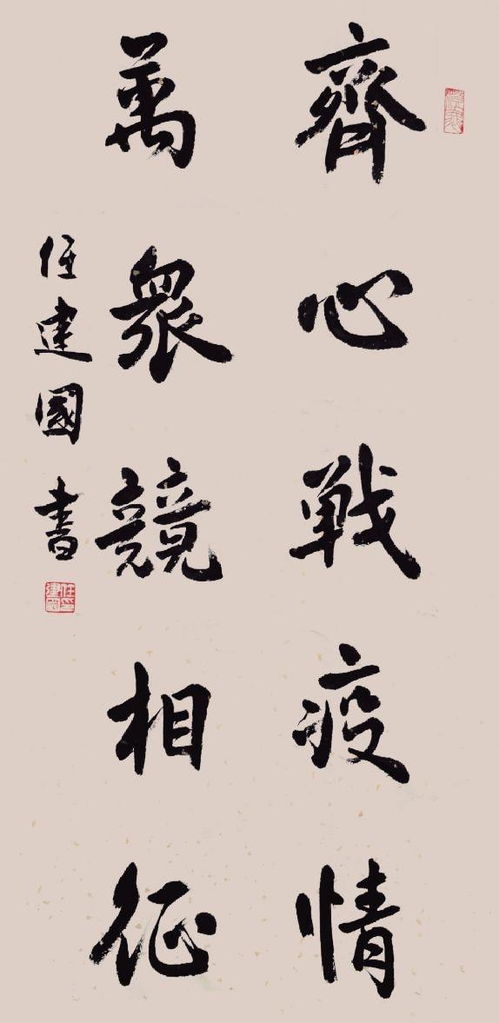 齊心戰疫情
萬眾競相征
任建國書